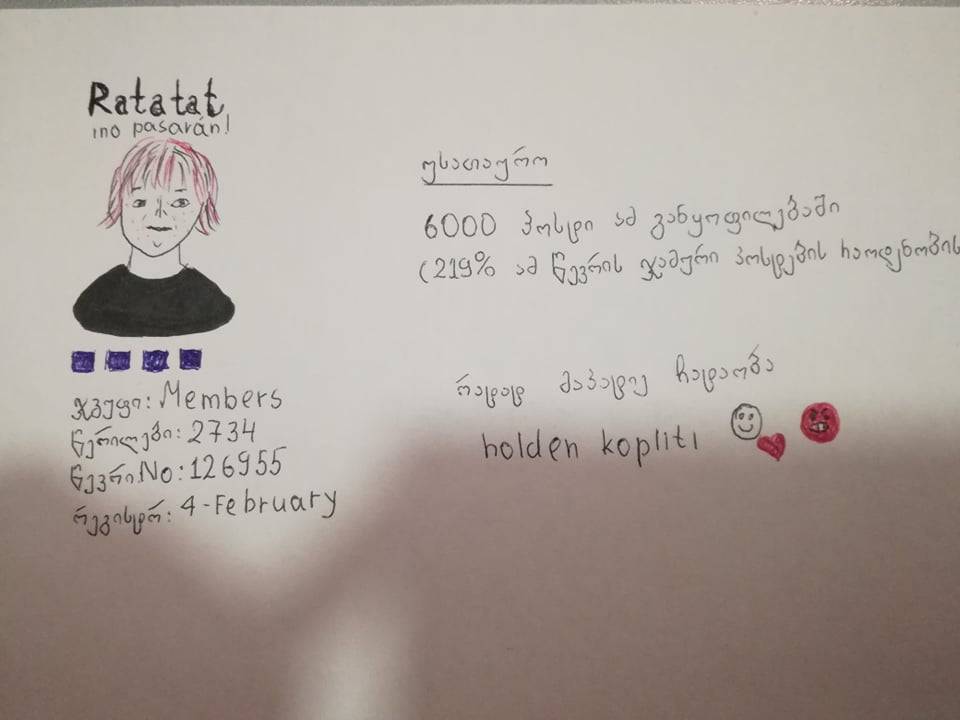 Ratatat
¡no pasarán!
ჯგუფი: Members
წერილები: 2734
წევრი No: 126955
რეგისტრ: 4-February
უსათაურო
6000 პოსტი ამ განყოფილებაში
(219% ამ წევრის ჯამური პოსტების რაოდენობის
რატატ მაპატიე ჩატაობა
holden kopliti